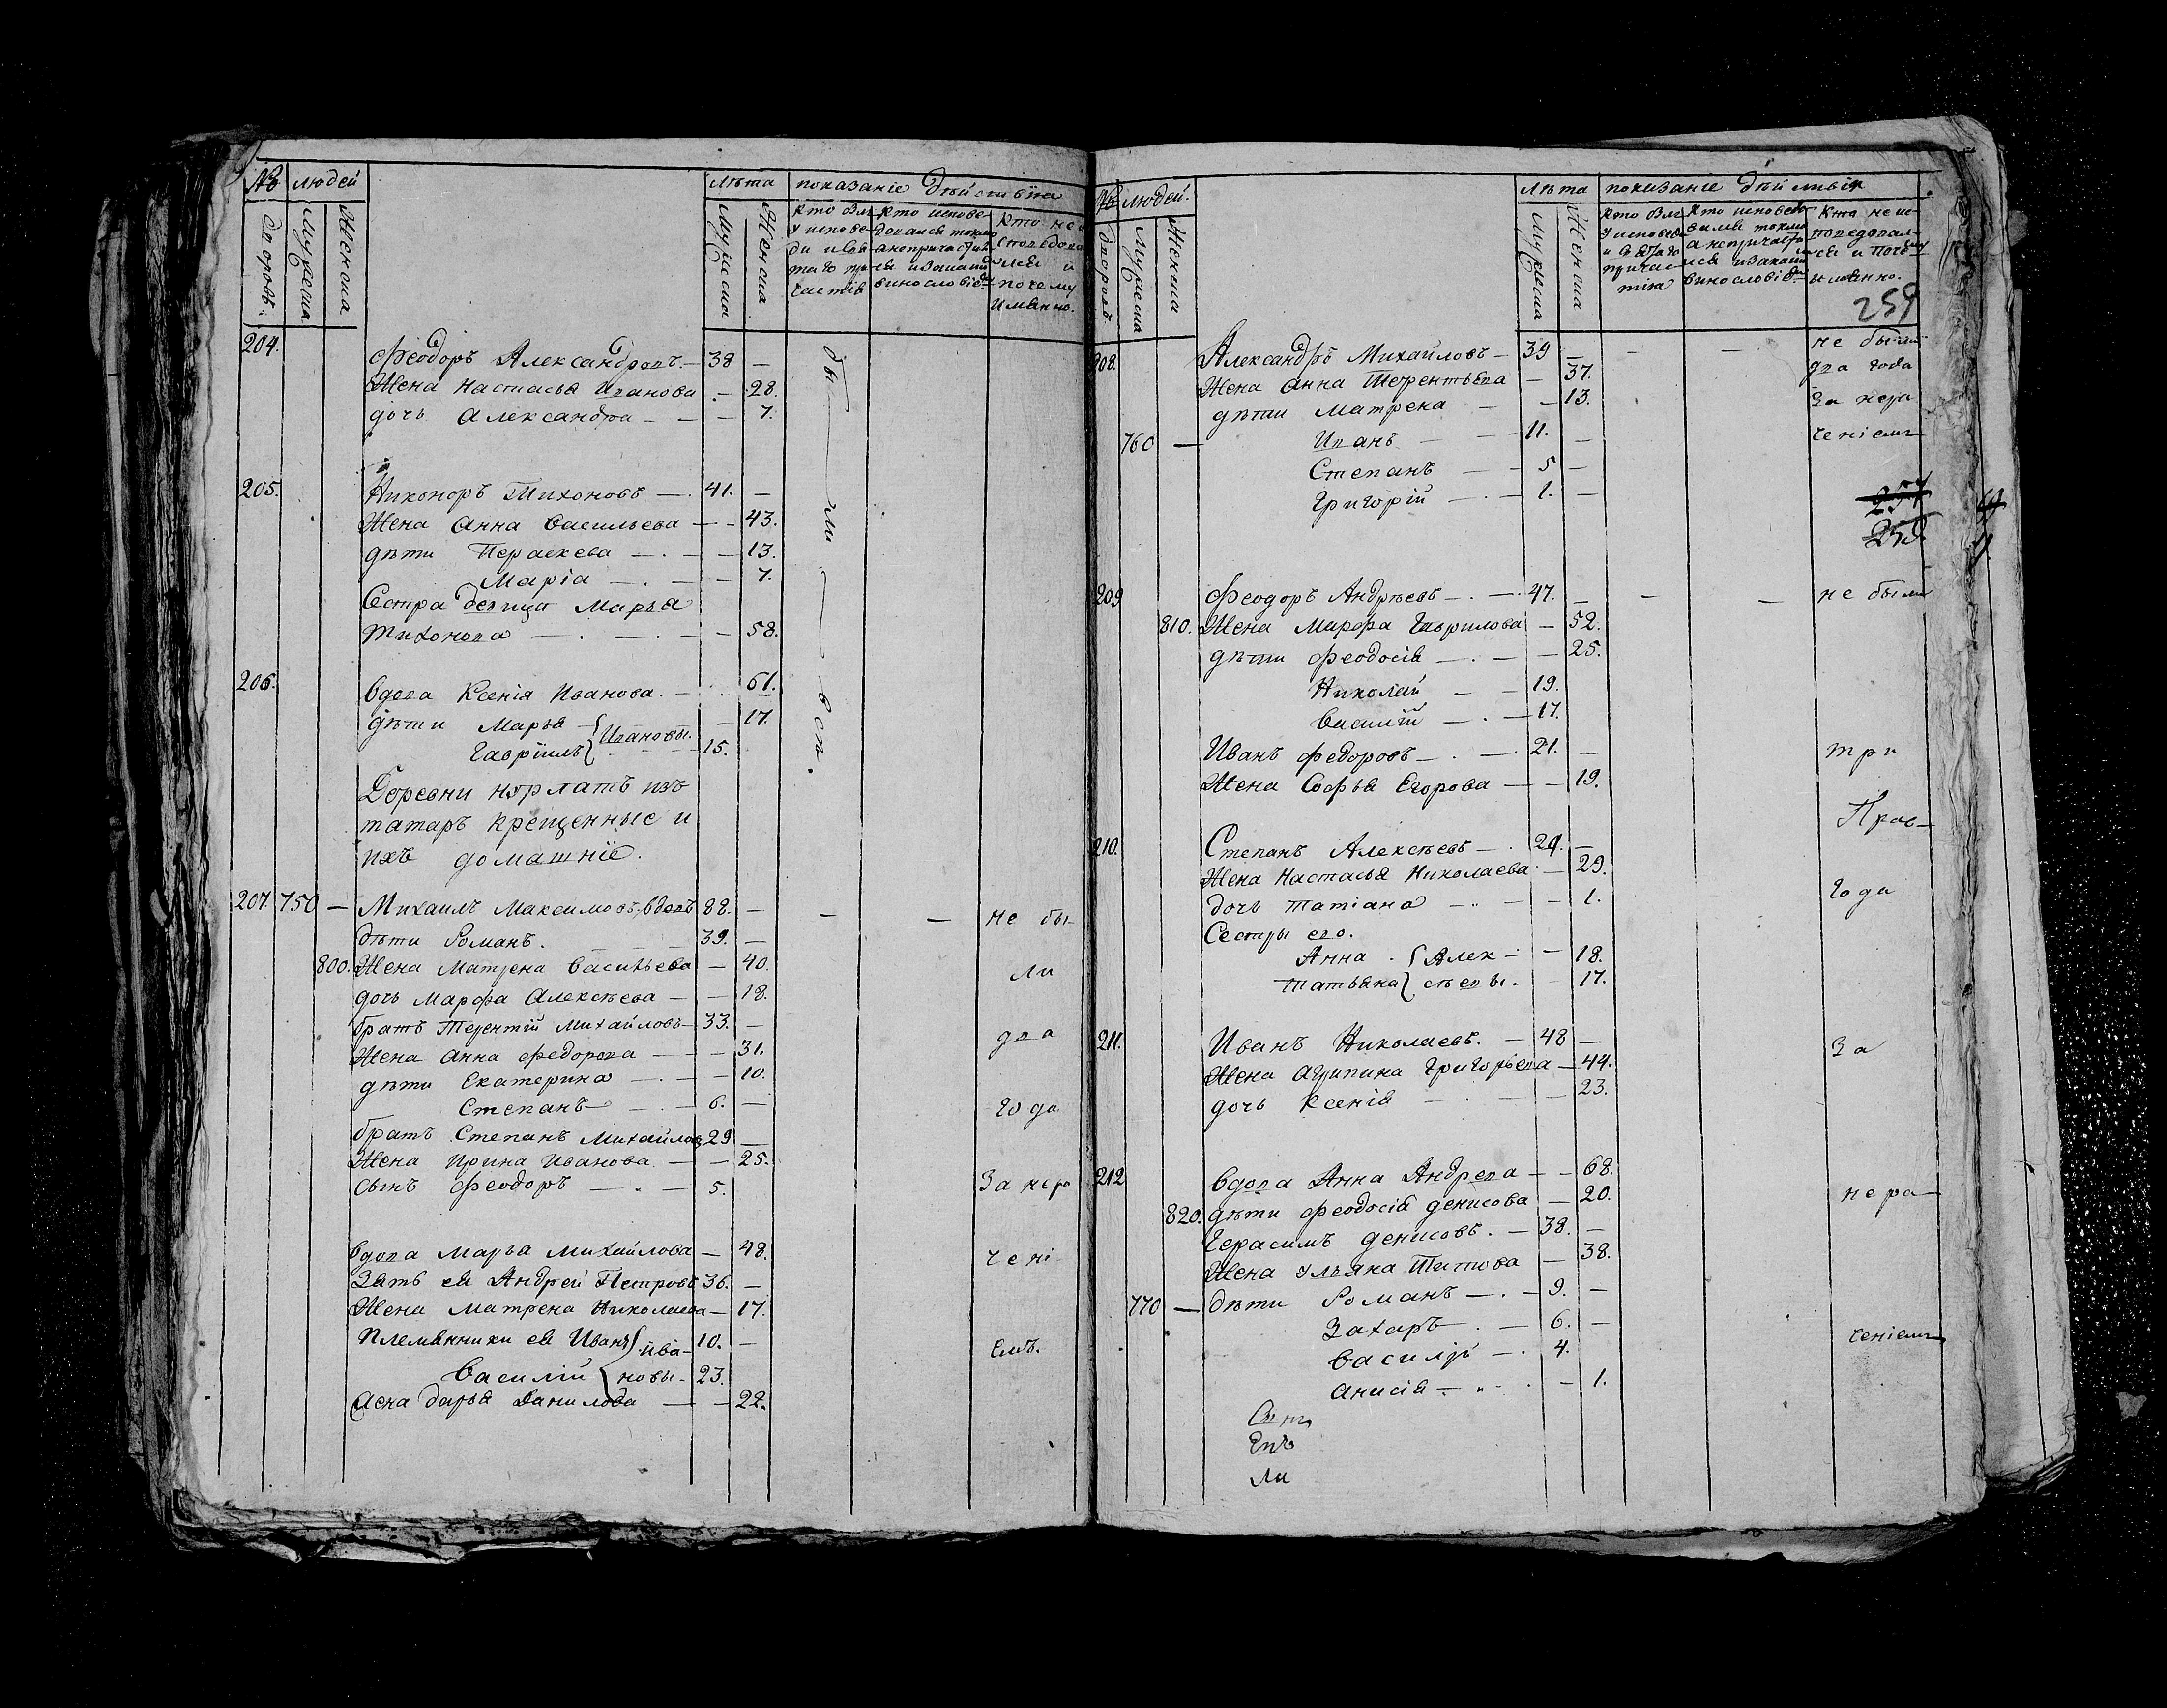 № людей лѣта показаніе дѣйствїя
дворовъ. Мужеска Женска Мужеска Женска
кто были у исповеди и свя таго причастія
Кто исповедовался токмо а непричастился и за каким винословіем
Кто не исповедовался и почему именно.
204. Феодоръ Александровъ. — 38 —
Жена Настасья Иванова — 28.
дочь Александра — — 7.
бы — ли — всѣ.
205. Никоноръ Тихоновъ — 41. —
Жена Анна Васильева — — 43.
дѣти Пераскева — — 13.
Марія — — 7.
Сестра девица Марья
Тихонова — — 58.
206. Вдова Ксенія Иванова. — 61.
дѣти Марья — { Ивановы. — 17.
Гавріилъ { — 15.
Деревни нурлатъ изъ
татаръ крещенные и
ихъ домашніе.
207. 750 — Михаилъ Максимовъ, вдовъ 88. — — — не бы-
дѣти Романъ. 39. —
800. Жена Матрена Васильева — 40. ли
дочь Марфа Алексѣева — — 18.
братъ Терентій Михайловъ — 33. —
Жена Анна Федорова — — 31. два
дѣти Екатерина — — 10.
Степанъ — 6. — года
братъ Степанъ Михайлов 29 —
Жена Ирина Иванова — — 25.
сынъ Феодоръ — 5. За нера
вдова Марья Михайлова — 48. чені
Зять ея Андрей Петровъ 36. —
Жена Матрена Николаева — 17.
Племянники ея Иванъ { Ива- 10. — емъ.
Василій { новы. 23.
Жена дарья Данилова — — 22.
№ людей. лѣта показаніе дѣйствія
дворовъ. Мужеска Женска Мужеска Женска
кто были у исповеди и святаго причастія
Кто исповедовался токмо а непричастился и за каким винословіем
Кто не исповедовался и почему именно.
259
208. Александръ Михайловъ — 39 — — — не были
Жена Анна Терентьева — 37. два года
дѣти Матрена — — 13. За нера
760 — Иванъ — 11. — ченіемъ
Степанъ — 5 —
Григорій — 1. —
257
258
209 Феодоръ Андрѣевъ — 47. — — — не были
810. Жена Марфа Гаврилова — 52.
дѣти Феодосія — — 25.
Николай — 19.
Василій — 17.
Иванъ Федоровъ — 21. — три
Жена Софья Егорова — — 19.
210. Степанъ Алексѣевъ — 29. —
Жена Настасья Николаева — 29.
дочь Татіана — — 1. года
Сестры ево.
Анна { Алек- — 18.
Татьяна { сѣевы. — 17.
211. Иванъ Николаевъ. — 48 — За
Жена Агрипина Григорьева — 44.
дочь Ксенія — 23.
212 Вдова Анна Андрева — — 68.
820. дѣти Феодосія денисова — 20. нера-
Герасимъ денисовъ. — 38. —
Жена Ульяна Титова — 38.
770 — дѣти Романъ — 9. —
Захаръ — 6. —
Василій — 4. ченіемъ
Анисія — — 1.